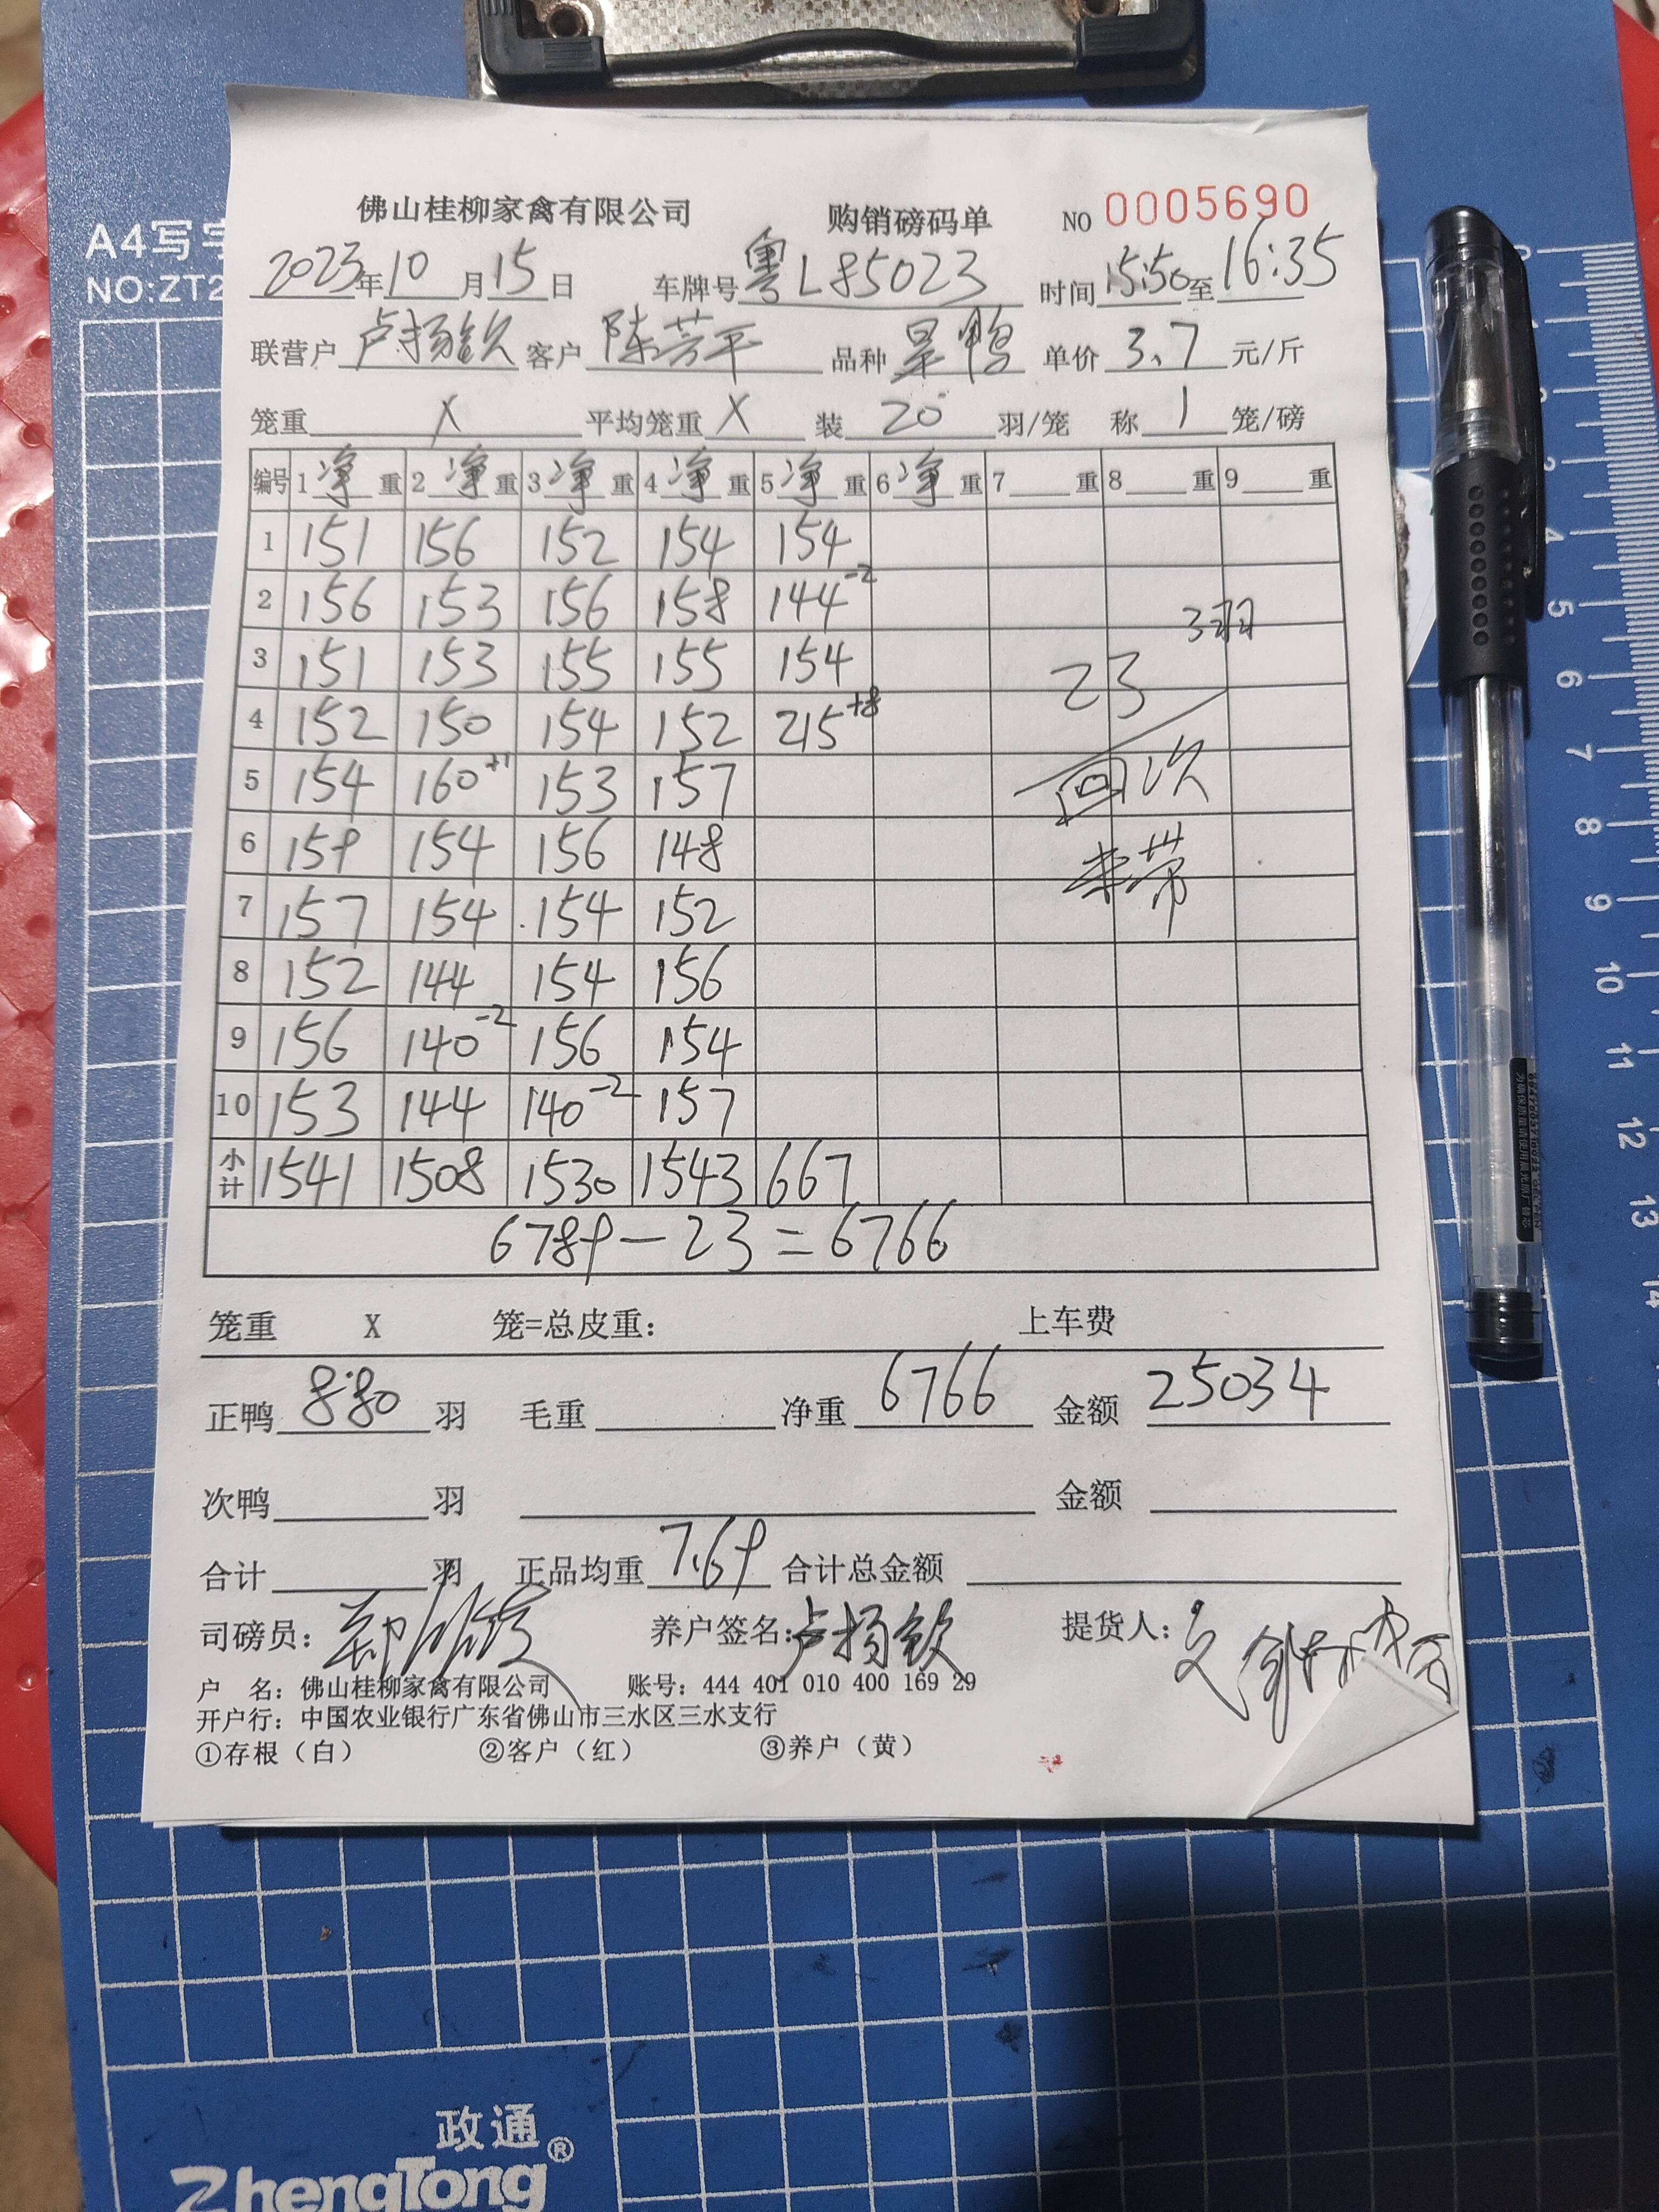 A4写字
NO:ZT2
佛山桂柳家禽有限公司 购销磅码单 NO 0005690
2023年10月15日 车牌号粤L85023 时间15:50至16:35
联营户卢扬钦 客户陈芳平 品种 鸭 单价3.7元/斤
笼重 X 平均笼重 X 装 20 羽/笼 称 1 笼/磅
编号 1净重 2净重 3净重 4净重 5净重 6净重 7重 8重 9重
1 151 156 152 154 154
2 156 153 156 158 144-2
3羽
3 151 153 155 155 154
23
4 152 150 154 152 215+8
5 154 160+1 153 157
回次
6 159 154 156 148
带
7 157 154 154 152
8 152 144 154 156
9 156 140-2 156 154
10 153 144 140-2 157
小计 1541 1508 1530 1543 667
6789-23=6766
笼重 X 笼=总皮重: 上车费
正鸭 880 羽 毛重 净重 6766 金额 25034
次鸭 羽 金额
合计 羽 正品均重 7.69 合计总金额
司磅员: 养户签名:卢扬钦 提货人:
户 名: 佛山桂柳家禽有限公司 账号: 444 401 010 400 169 29
开户行: 中国农业银行广东省佛山市三水区三水支行
①存根（白） ②客户（红） ③养户（黄）
5
6
7
8
9
10
11
12
13
14
政通®
ZhengTong